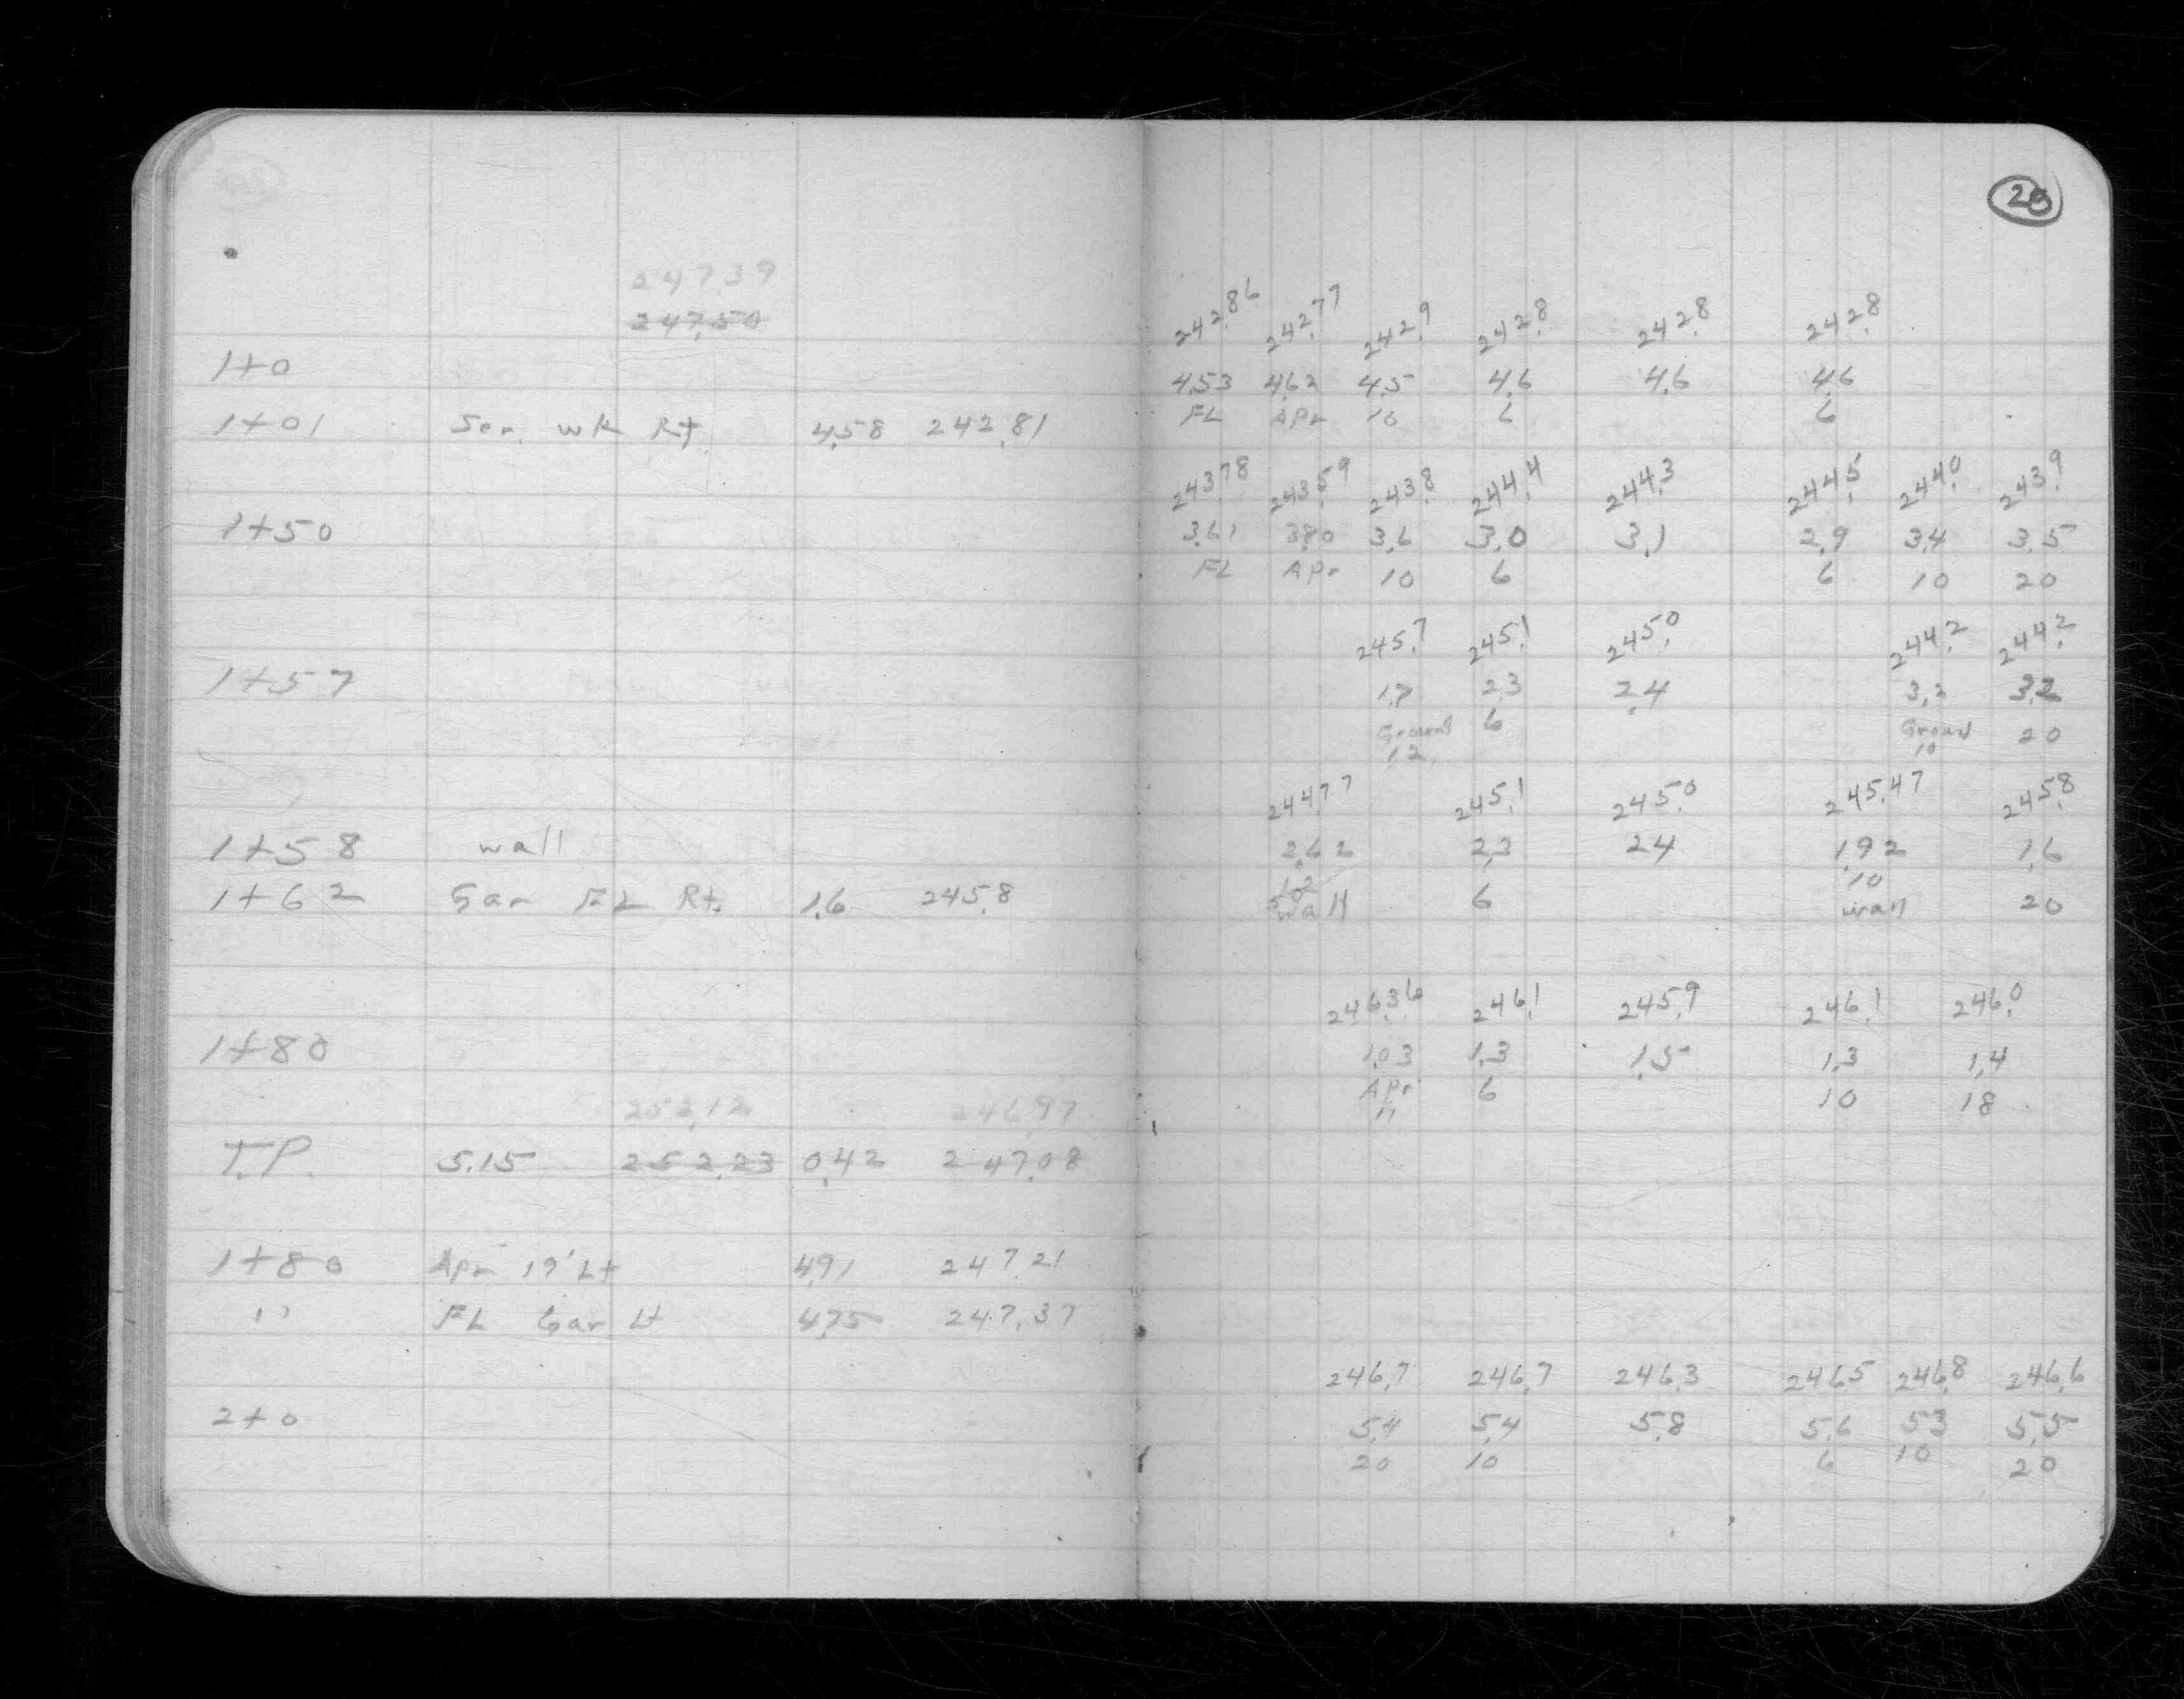 20
247.39
247.50
242.86 242.77 242.9 242.8 242.8 242.8
1+0 4.53 4.62 4.5 4.6 4.6 4.6
FL Apr 10 6 6
1+01 Ser. wk Rt. 4.58 242.81
243.78 243.59 243.8 244.4 244.3 244.5 244.0 243.9
1+50 3.61 3.80 3.6 3.0 3.1 2.9 3.4 3.5
FL Apr 10 6 6 10 20
245.7 245.1 245.0 244.2 244.2
1+57 1.7 2.3 2.4 3.2 3.2
Ground 6 Ground 20
12 10
244.77 245.1 245.0 245.47 245.8
1+58 wall 2.62 2.3 2.4 1.92 1.6
10
1+62 Gar FL Rt. 1.6 245.8 wall 6 wall 20
246.36 246.1 245.9 246.1 246.0
1+80 1.03 1.3 1.5 1.3 1.4
Apr 6 10 18
11
252.12 246.97
T.P. 5.15 252.23 0.42 247.08
1+80 Apr 19' Lt 4.91 247.21
" FL Gar Lt 4.75 247.37
246.7 246.7 246.3 246.5 246.8 246.6
2+0 5.4 5.4 5.8 5.6 5.3 5.5
20 10 6 10 20